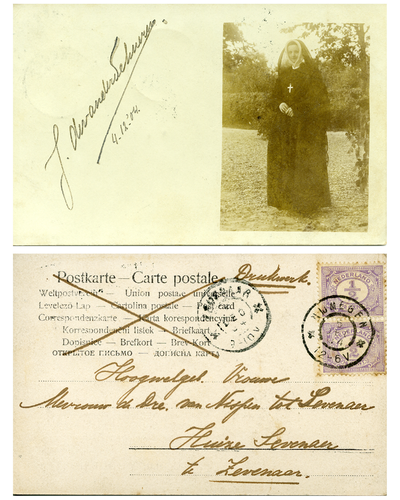 4.12.'04.
Postkarte — Carte postale
Drukwerk.
Weltpostverein — Union postale universelle
Levelező-Lap — Cartolina postale — Post card
Correspondenzkarte — Karta korespondencyjna
Korrespondenční lístek — Briefkaart
Dopisnice — Brefkort — Brev-Kort
ОТКРЫТОЕ ПИСЬМО — ДОПИСНА КАРТА
NEDERLAND
½
Hoogwelgeb. Vrouwe
Mevrouw de Dre. van Nispen tot Sevenaer
Huize Sevenaer
te Zevenaar.